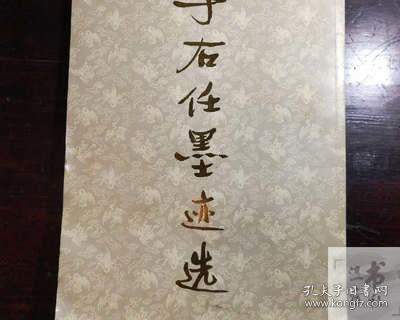 于右任墨迹选
孔夫子旧书网
www.kongfz.com